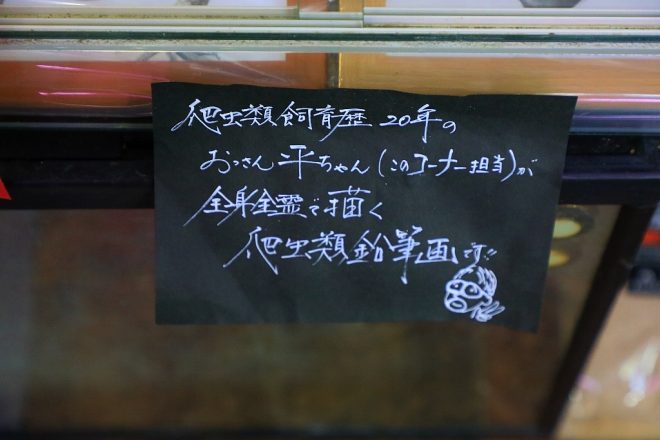 爬虫類飼育歴20年の
おっさん平ちゃん(このコーナー担当)が
全身全霊で描く
爬虫類鉛筆画です!!